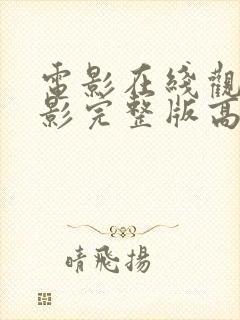 電影在綫觀
影完整版高
晴飛揚